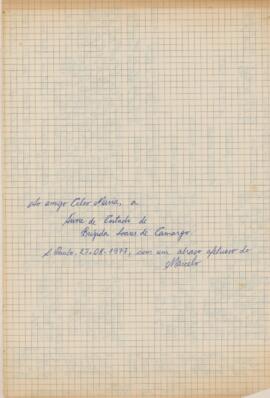 Ao amigo Celso Maria, a
de Costado de
Brígida Soares de Camargo.
S. Paulo, 27-08-1977, com um abraço afetuoso do
Marcelo